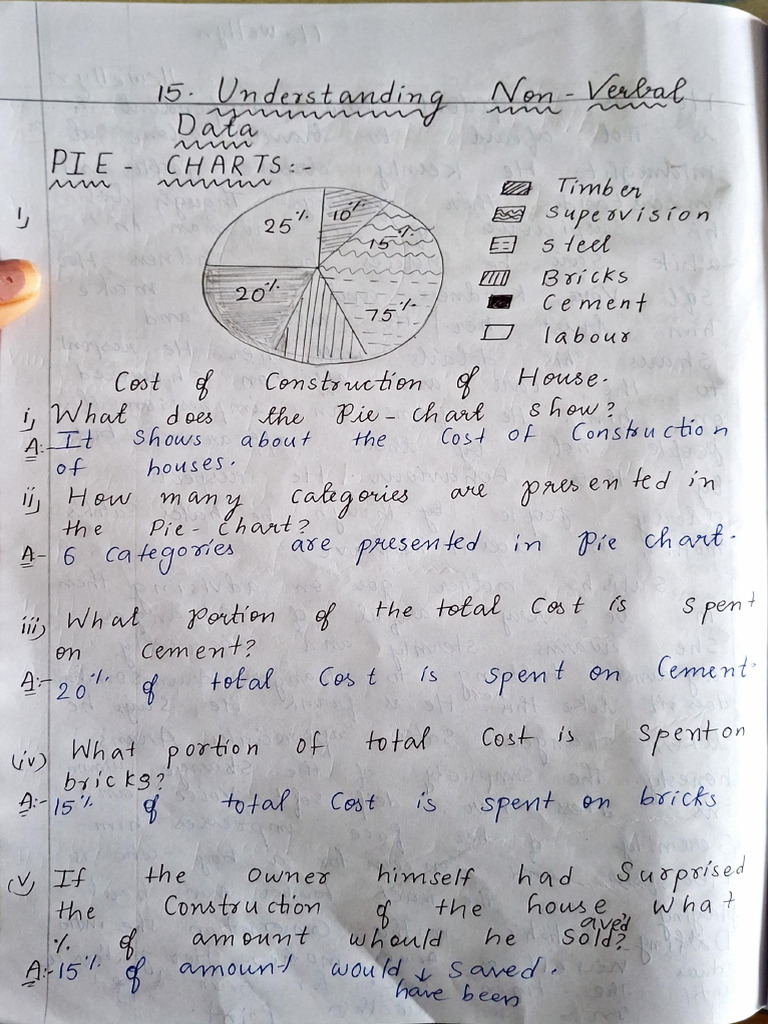 15. Understanding Non-Verbal
Data
PIE - CHARTS:-
1,
25%
10%
15%
20%
75%
Timber
Supervision
Steel
Bricks
Cement
labour
Cost of Construction of House.
i, What does the Pie-chart show?
A:- It shows about the Cost of Construction
of houses.
ii, How many categories are presented in
the Pie-Chart?
A- 6 categories are presented in Pie chart.
iii, What Portion of the total cost is spent
on cement?
A:- 20% of total Cost is spent on Cement.
(iv) What portion of total Cost is spent on
bricks?
A:- 15% of total Cost is spent on bricks
(v, If the owner himself had Surprised
the Construction of the house what
aved
% of amount whould he sold?
A:- 15% of amount would ↓ saved.
have been